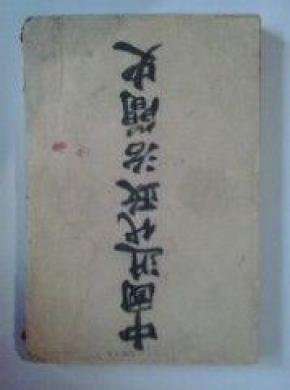 中國近代政治簡史